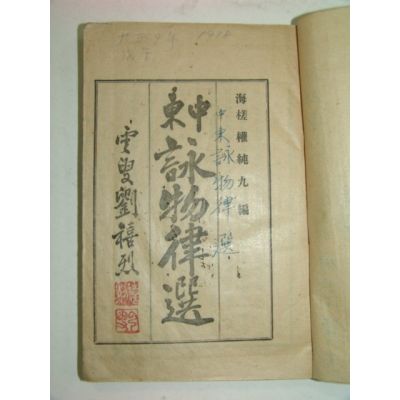 大正7年 1918
戊午
海槎 權純九 編
中東詠物律選
中東詠物律選
雲叟劉禧烈